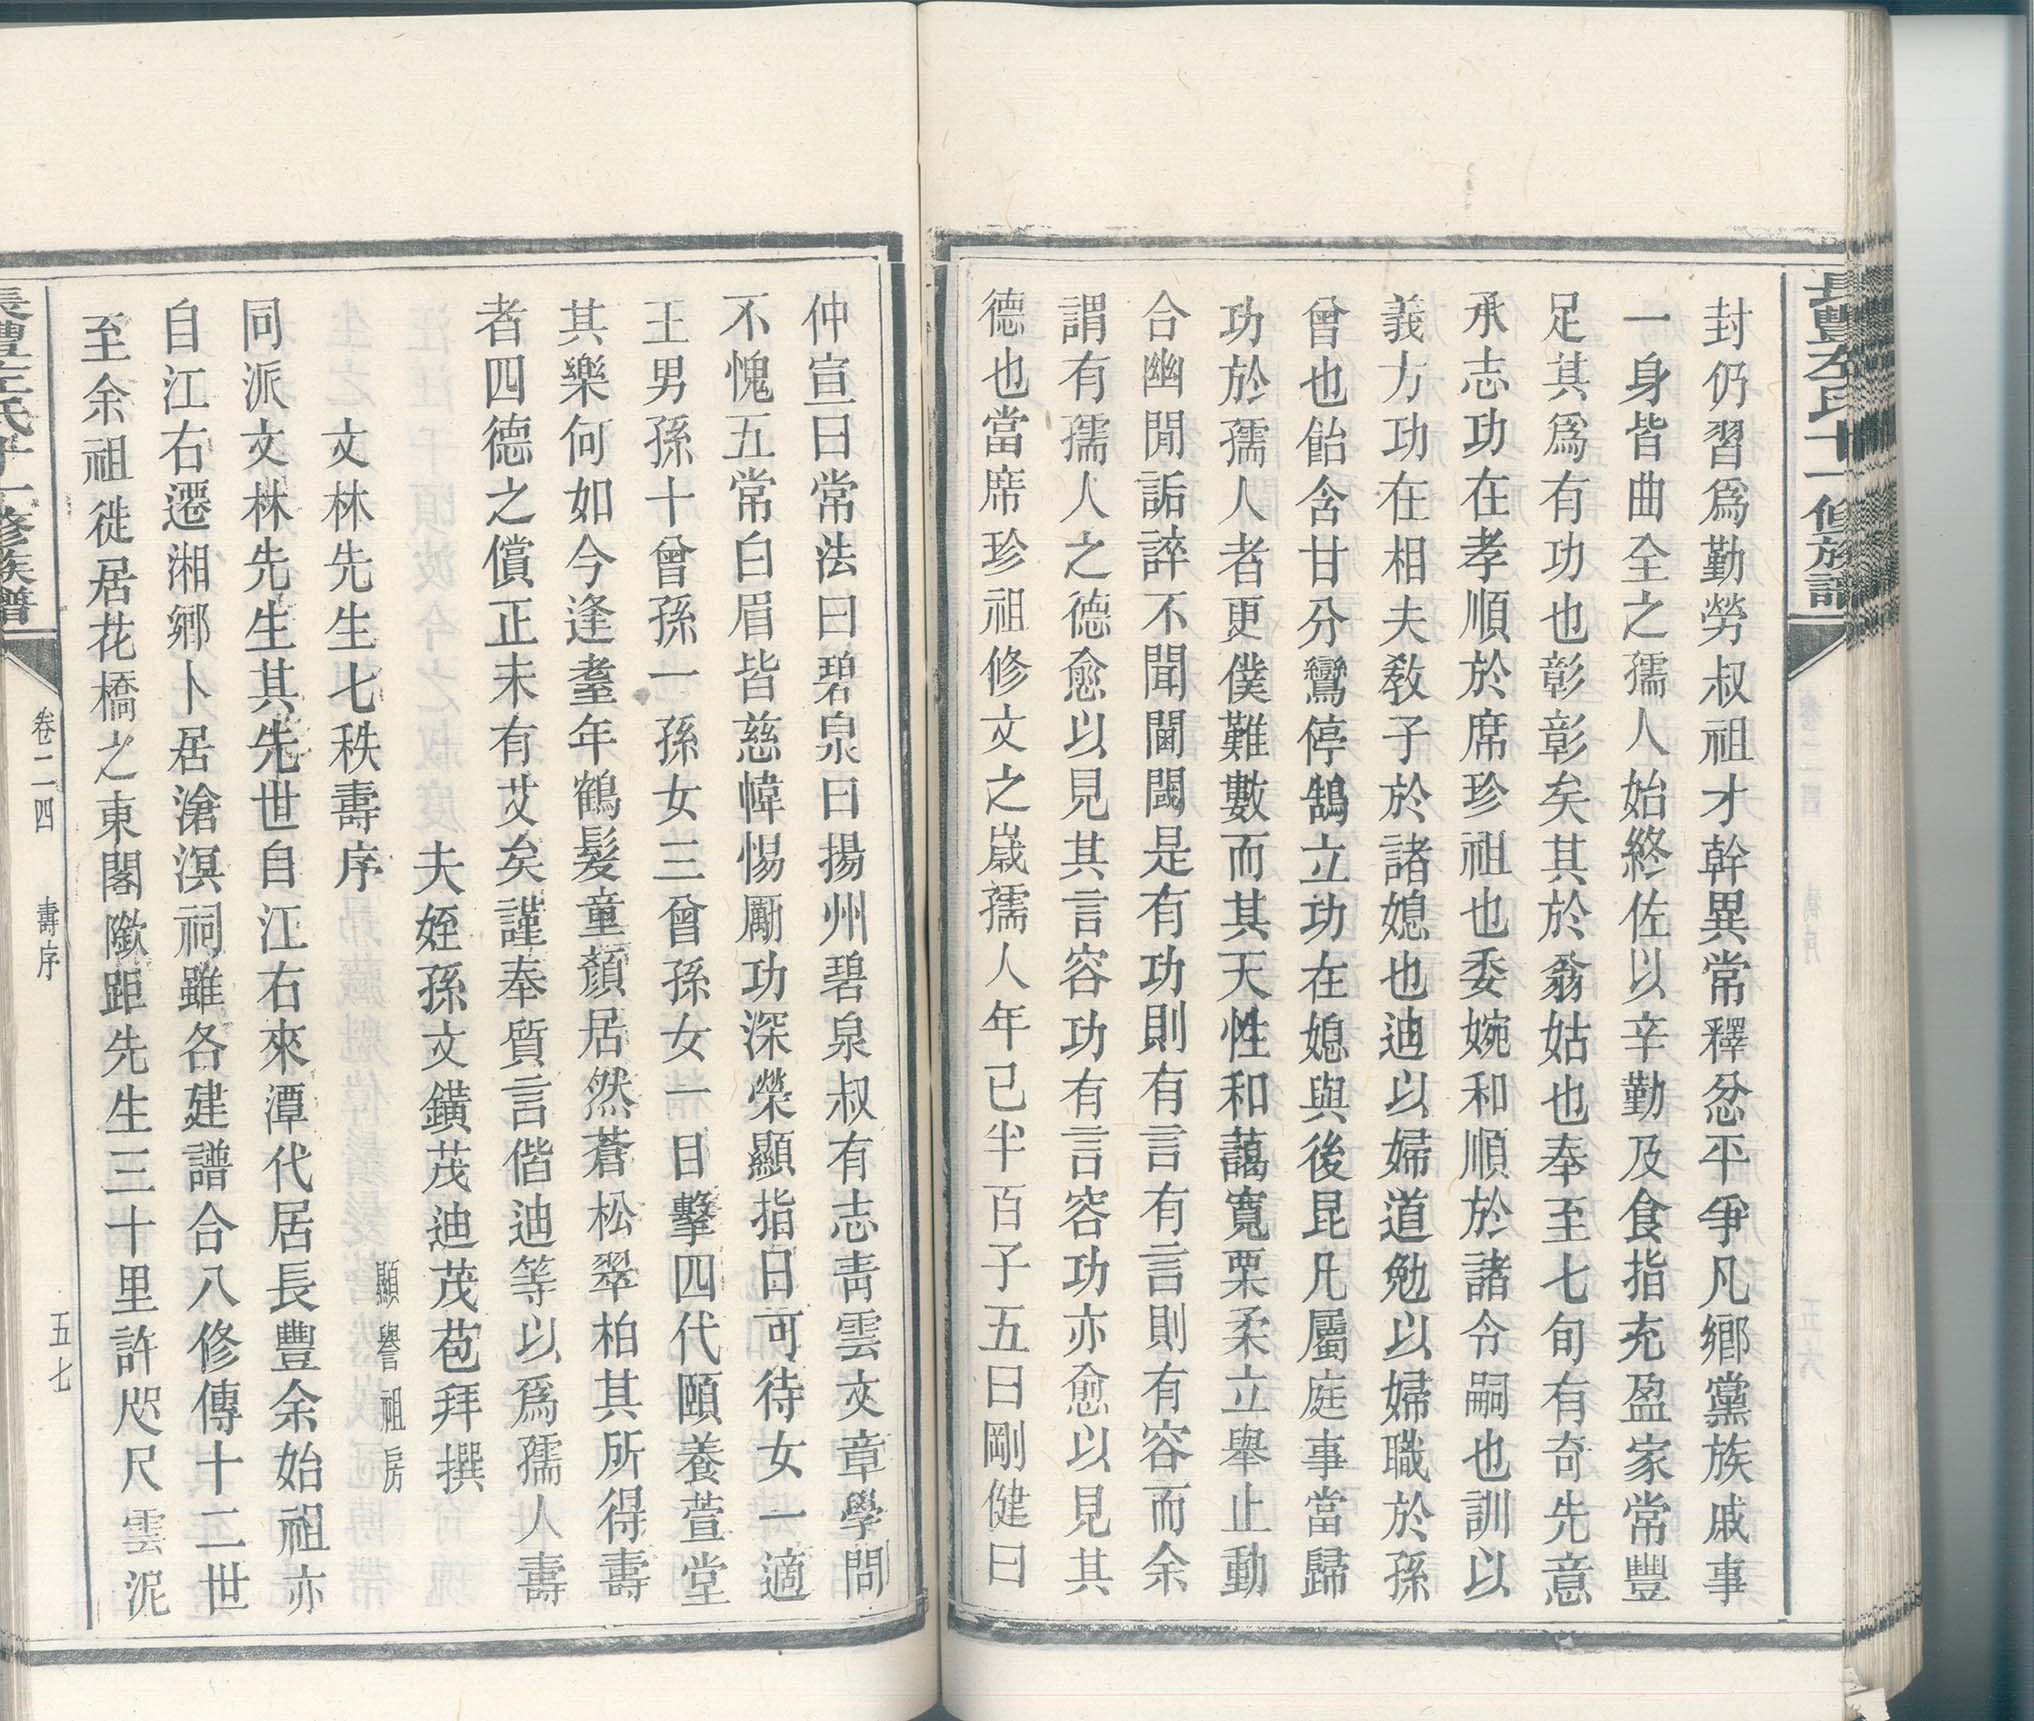 長豐左氏十一修族譜
封仍習爲勤勞叔祖才幹異常釋忿平爭凡鄉黨族戚事
一身皆曲全之孺人始終佐以辛勤及食指充盈家常豐
足其爲有功也彰彰矣其於翁姑也奉至七旬有奇先意
承志功在孝順於席珍祖也委婉和順於諸令嗣也訓以
義方功在相夫敎子於諸媳也迪以婦道勉以婦職於孫
曾也飴含甘分鸞停鵠立功在媳與後昆凡屬庭事當歸
功於孺人者更僕難數而其天性和藹寬栗柔立舉止動
合幽閒詬誶不聞閫閾是有功則有言有言則有容而余
謂有孺人之德愈以見其言容功有言容功亦愈以見其
德也當席珍祖修文之歲孺人年已半百子五曰剛健曰
仲宣曰常法曰碧泉曰揚州碧泉叔有志靑雲文章學問
不愧五常白眉皆慈幃惕勵功深榮顯指日可待女一適
王男孫十曾孫一孫女三曾孫女一目擊四代頤養萱堂
其樂何如今逢耋年鶴髮童顏居然蒼松翠柏其所得壽
者四德之償正未有艾矣謹奉質言偕迪等以爲孺人壽
夫姪孫文鐄茂迪茂苞拜撰
文林先生七秩壽序
顯譽祖房
同派文林先生其先世自江右來潭代居長豐余始祖亦
自江右遷湘鄉卜居滄溟祠雖各建譜合八修傳十二世
至余祖徙居花橋之東閣隞距先生三十里許咫尺雲泥
長豐左氏十一修族譜
卷二四
壽序
五七